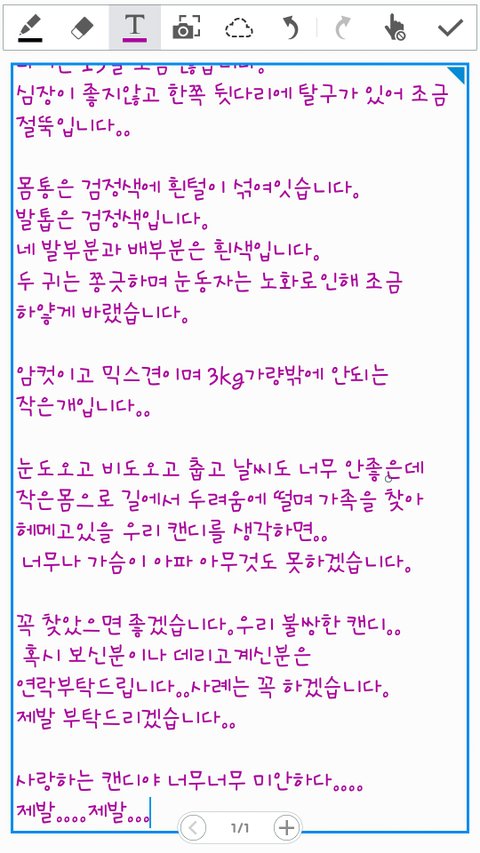 T
심장이 좋지않고 한쪽 뒷다리에 탈구가 있어 조금
절뚝입니다..
몸통은 검정색에 흰털이 섞여잇습니다.
발톱은 검정색입니다.
네 발부분과 배부분은 흰색입니다.
두 귀는 쫑긋하며 눈동자는 노화로인해 조금
하얗게 바랬습니다.
암컷이고 믹스견이며 3kg가량밖에 안되는
작은개입니다..
눈도오고 비도오고 춥고 날씨도 너무 안좋은데
작은몸으로 길에서 두려움에 떨며 가족을 찾아
헤메고있을 우리 캔디를 생각하면..
너무나 가슴이 아파 아무것도 못하겠습니다.
꼭 찾았으면 좋겠습니다.우리 불쌍한 캔디..
혹시 보신분이나 데리고계신분은
연락부탁드립니다..사례는 꼭 하겠습니다.
제발 부탁드리겠습니다..
사랑하는 캔디야 너무너무 미안하다....
제발....제발...
1/1